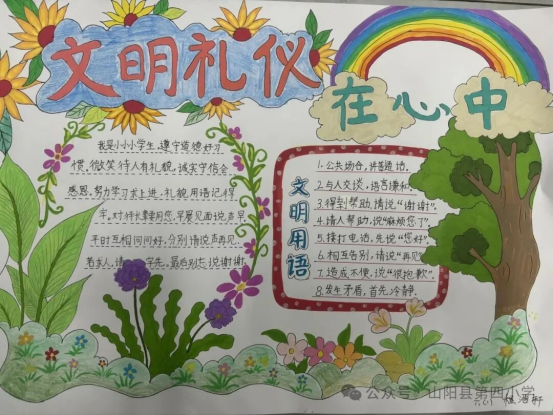 文明礼仪
在心中
我是小小学生,遵守道德好习
惯,微笑待人有礼貌,诚实守信会
感恩,努力学习求上进,礼貌用语记得
牢,对师长要用您,早晨见面说声早
平时互相问问好,分别请说声再见
若求人,请字先,最后别忘说谢谢
文明用语
1.公共场合,讲普通话.
2.与人交谈,语言谦和
3.得到帮助,请说"谢谢".
4.请人帮助,说"麻烦您了".
5.接打电话,先说"您好".
6.相互告别,请说"再见"
7.造成不便,说"很抱歉".
8.发生矛盾,首先冷静.
公众号·山阳县第四小学